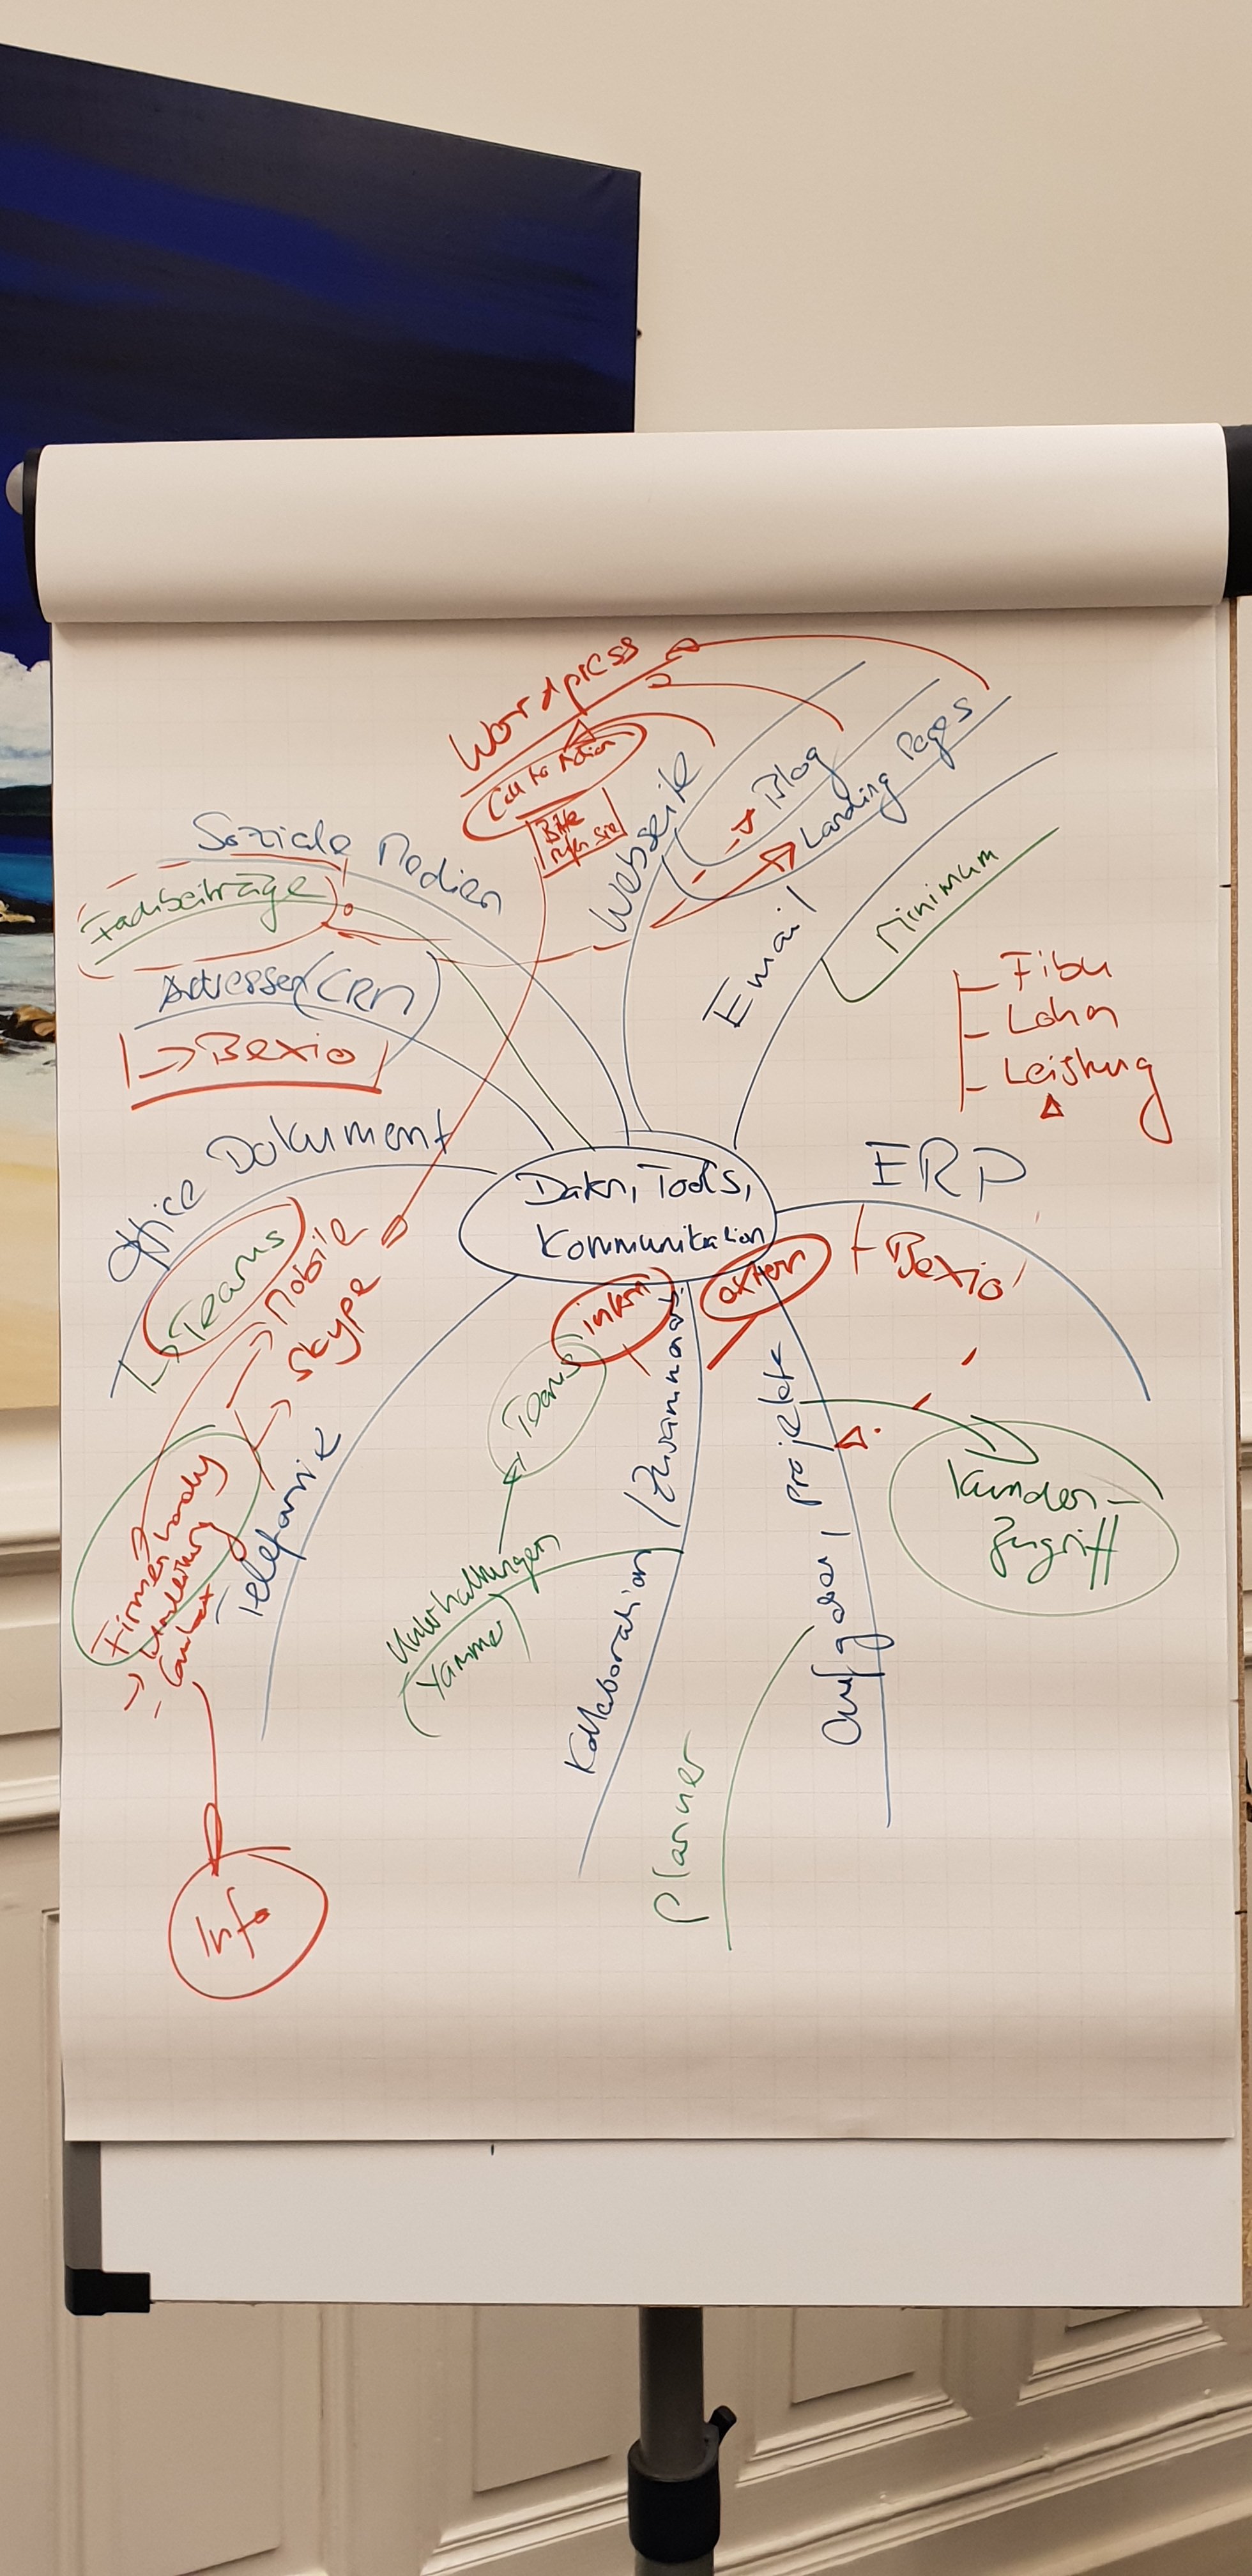 Wordpress
Call to Action
Bitte
rufen Sie
Webseite
Blog
Landing Pages
Soziale Medien
Fachbeiträge
Adressen (CRM)
Bexio
Email
Minimum
Fibu
Lohn
Leistung
ERP
Bexio
Office Dokument
Teams
Mobile
Skype
Daten, Tools,
Kommunikation
intern
extern
Teams
Unterhaltungen
Yammer
Kollaboration / Zusammenarb.
Aufgaben / Projekte
Planner
Kunden-
Zugriff
Telefonie
Firmenhandy
Info